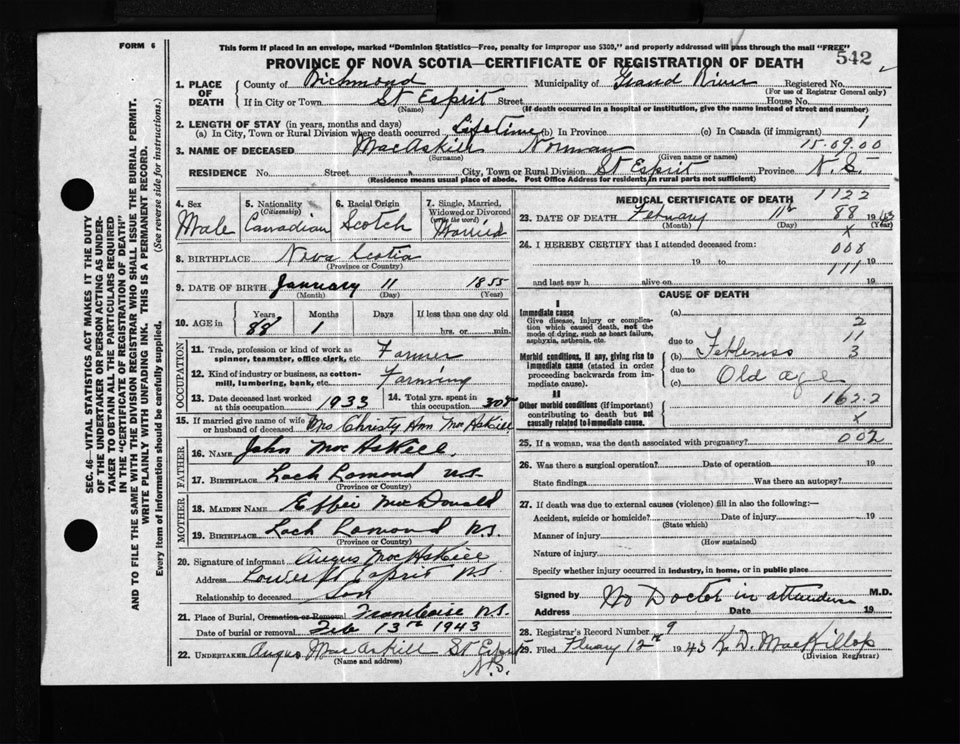 FORM 6
This form if placed in an envelope, marked "Dominion Statistics—Free, penalty for improper use $300," and properly addressed will pass through the mail "FREE"
PROVINCE OF NOVA SCOTIA—CERTIFICATE OF REGISTRATION OF DEATH
542
1. PLACE OF DEATH
County of Richmond Municipality of Grand River Registered No.
(For use of Registrar General only)
If in City or Town St Esprit Street House No.
(Name) (If death occurred in a hospital or institution, give the name instead of street and number)
2. LENGTH OF STAY (in years, months and days)
(a) In City, Town or Rural Division where death occurred Lifetime (b) In Province (c) In Canada (if immigrant) 1
3. NAME OF DECEASED MacAskill Norman 15.09.00
(Surname) (Given name or names)
RESIDENCE No. Street City, Town or Rural Division St Esprit Province N.S.
(Residence means usual place of abode. Post Office Address for residents in rural parts not sufficient)
4. Sex Male
5. Nationality (Citizenship) Canadian
6. Racial Origin Scotch
7. Single, Married, Widowed or Divorced (write the word) Married
8. BIRTHPLACE Nova Scotia
(Province or Country)
9. DATE OF BIRTH January 11 1855
(Month) (Day) (Year)
10. AGE in Years 88 Months 1 Days If less than one day old hrs. or min.
OCCUPATION
11. Trade, profession or kind of work as spinner, teamster, office clerk, etc. Farmer
12. Kind of industry or business, as cotton-mill, lumbering, bank, etc. Farming
13. Date deceased last worked at this occupation 1933
14. Total yrs. spent in this occupation
15. If married give name of wife or husband of deceased Mrs Christy Ann MacAskill
FATHER
16. NAME John MacAskill
17. BIRTHPLACE Loch Lomond NS
(Province or Country)
MOTHER
18. MAIDEN NAME Effie MacDonald
19. BIRTHPLACE Loch Lomond N.S.
(Province or Country)
20. Signature of informant Angus MacAskill
Address Lower St Esprit NS
Relationship to deceased Son
21. Place of Burial, Cremation or Removal Framboise N.S.
Date of burial or removal Feb 13th 1943
22. UNDERTAKER Angus MacAskill St Esprit N.S.
(Name and address)
MEDICAL CERTIFICATE OF DEATH
1122
23. DATE OF DEATH Febuary 11th 88 1943
(Month) (Day) (Year)
x
24. I HEREBY CERTIFY that I attended deceased from:
000
19 to 19
111
and last saw h alive on 19
CAUSE OF DEATH
I
Immediate cause
Give disease, injury or complication which caused death, not the mode of dying, such as heart failure, asphyxia, asthenia, etc.
(a)
2
due to 11
Morbid conditions, if any, giving rise to immediate cause (stated in order proceeding backwards from immediate cause).
(b) Febleness 3
due to
(c) Old age
II
Other morbid conditions (if important) contributing to death but not causally related to immediate cause.
162.2
x
25. If a woman, was the death associated with pregnancy? 002
26. Was there a surgical operation? Date of operation 19
State findings Was there an autopsy?
27. If death was due to external causes (violence) fill in also the following:—
Accident, suicide or homicide? Date of injury 19
(State which)
Manner of injury
(How sustained)
Nature of injury
Specify whether injury occurred in industry, in home, or in public place
Signed by No Doctor in attendance M.D.
Address Date 19
28. Registrar's Record Number 9
29. Filed Fbuary 12th 1943 K.D. MacKillop
(Division Registrar)
SEC. 46—VITAL STATISTICS ACT MAKES IT THE DUTY
OF THE UNDERTAKER OR PERSON ACTING AS UNDERTAKER TO OBTAIN ALL THE PARTICULARS REQUIRED
IN THE "CERTIFICATE OF REGISTRATION OF DEATH"
AND TO FILE THE SAME WITH THE DIVISION REGISTRAR WHO SHALL ISSUE THE BURIAL PERMIT.
WRITE PLAINLY WITH UNFADING INK. THIS IS A PERMANENT RECORD.
Every item of information should be carefully supplied. (See reverse side for instructions.)